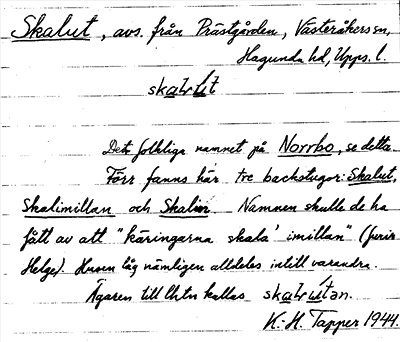 Skalut, avs. från Prästgården, Västeråkers sn,
Hagunda hd, Upps. l.
skalut
Det folkliga namnet på Norrbo, se detta.
Förr fanns här tre backstugor: Skalut,
Skalimillan och Skalin. Namnen skulle de ha
fått av att "käringarna skala' imillan" (
Helge). Husen låg nämligen alldeles intill varandra.
Ägaren till kallas skalutan.
K.-H. Tapper 1944.